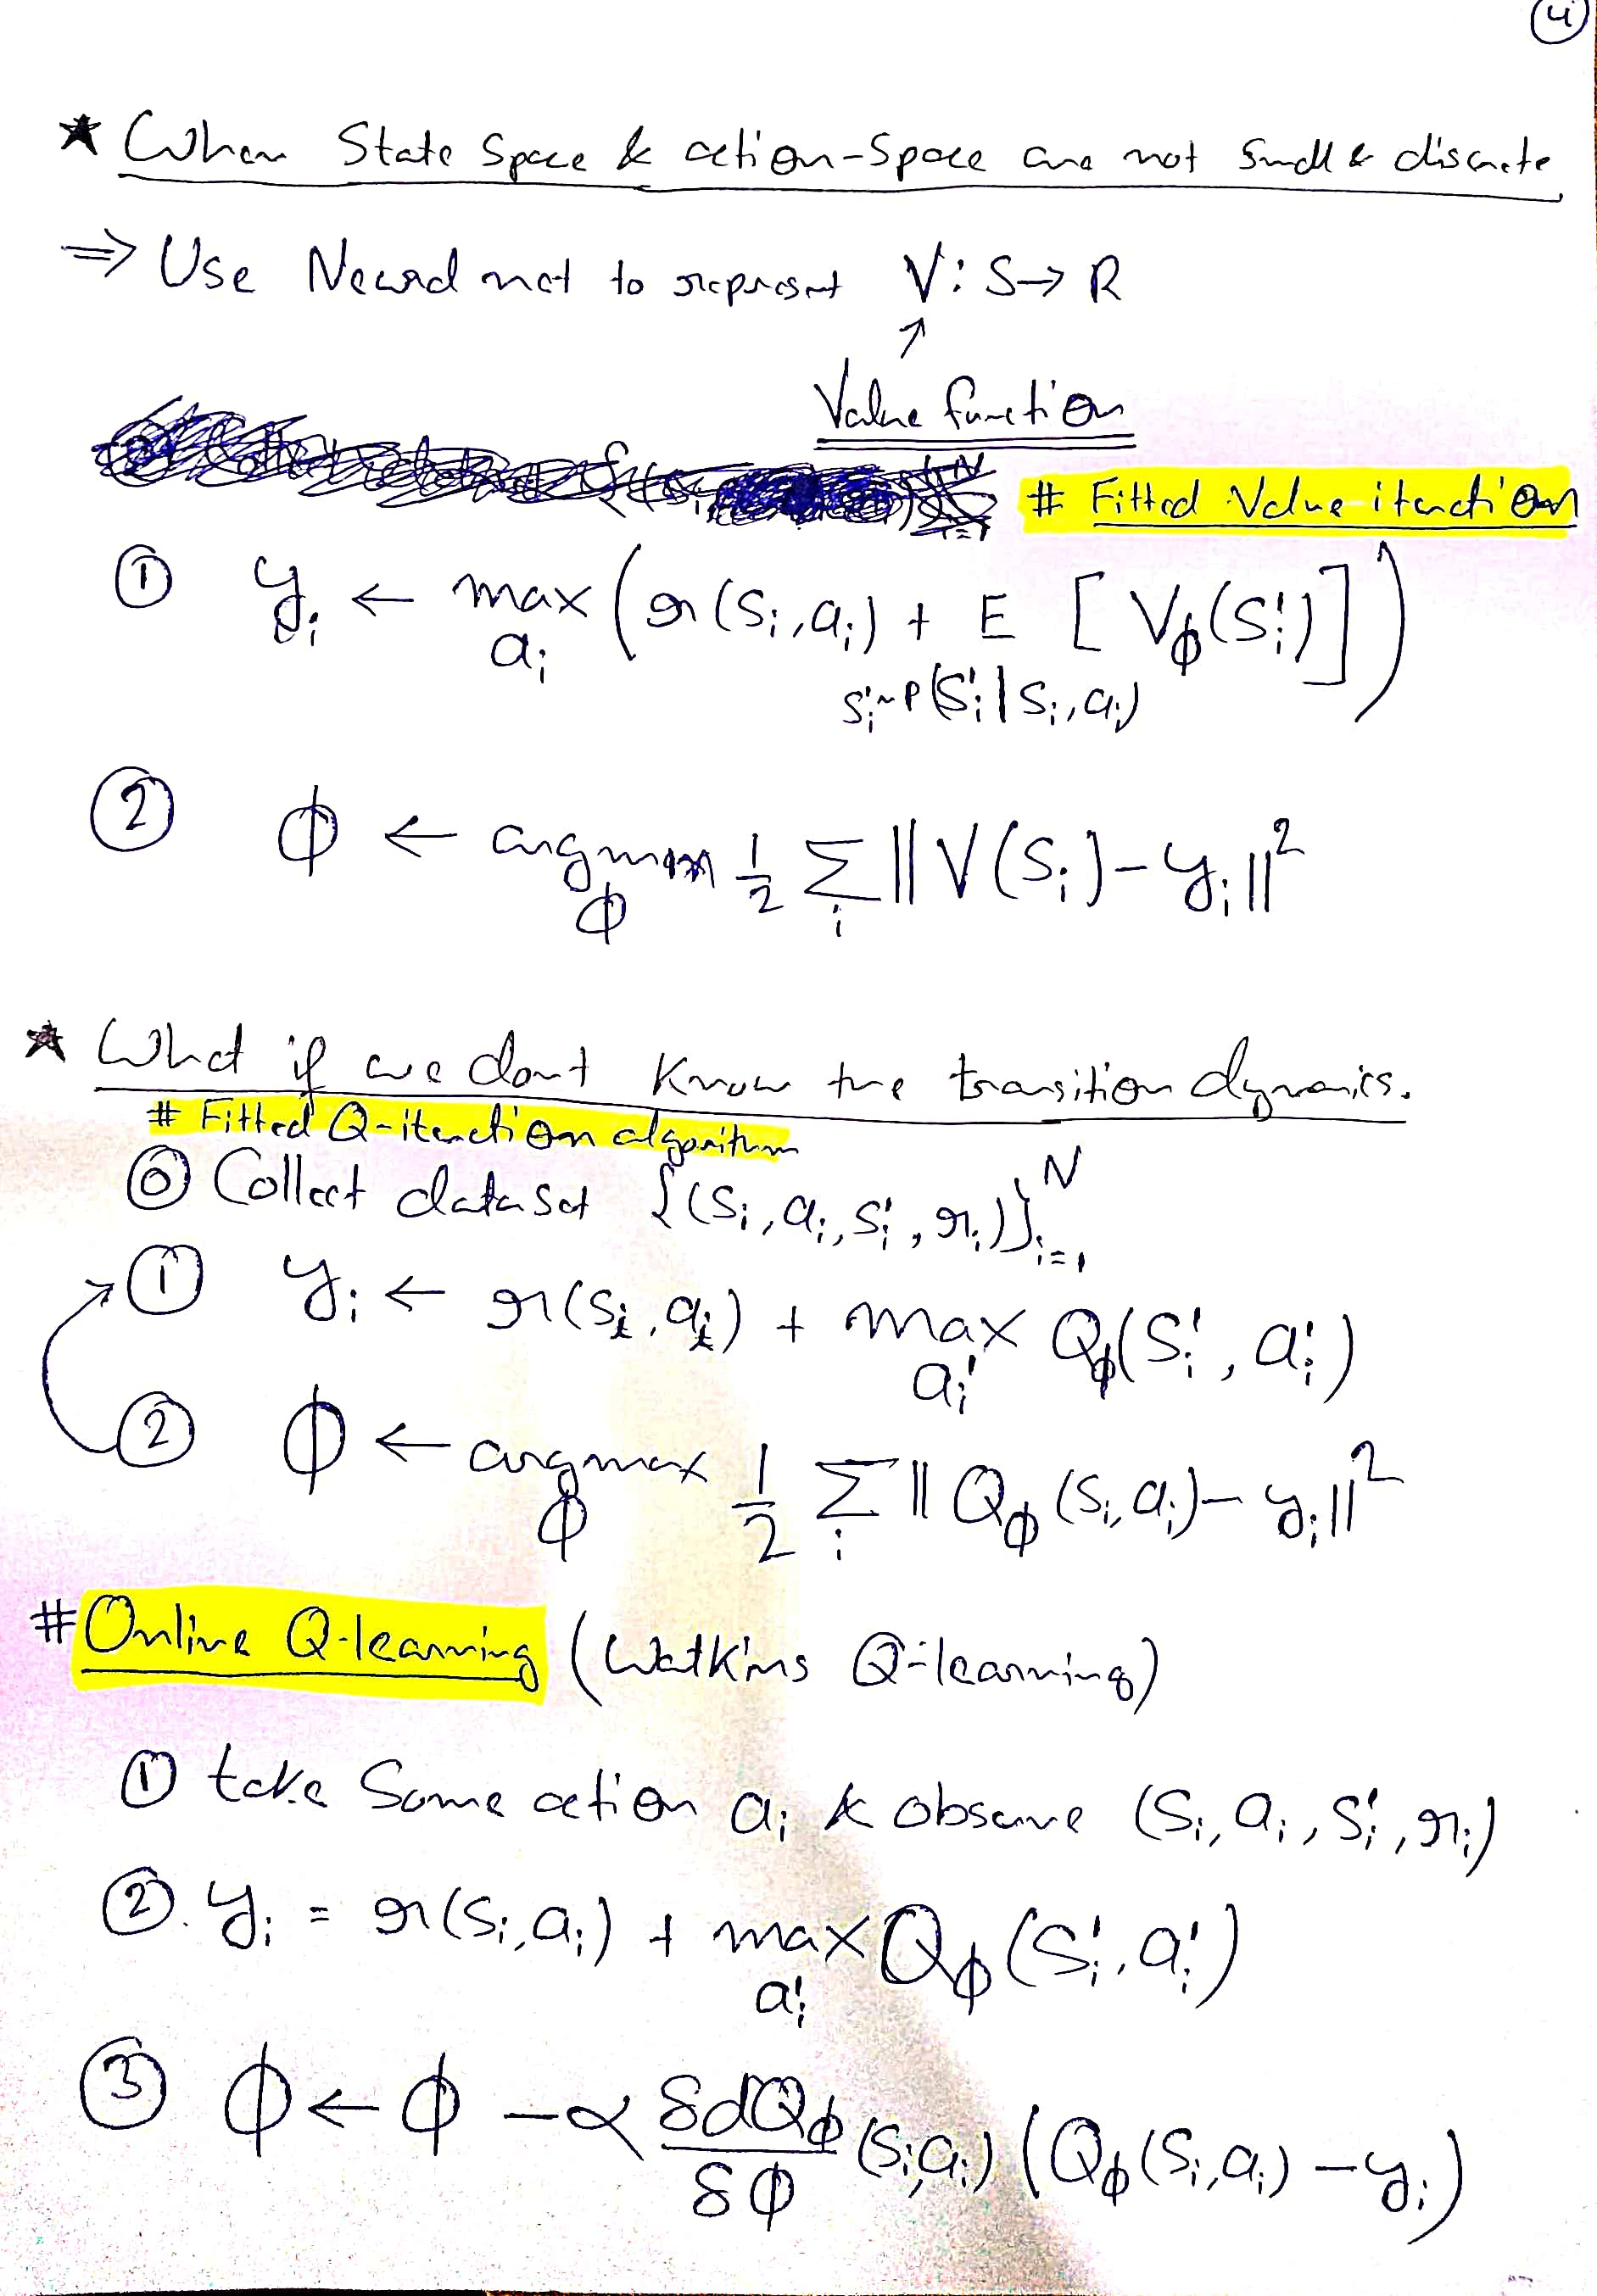 4
★ When State Space & action-Space are not small & discrete
⇒ Use Neural net to represent V: S→R
↑
Value function
# Fitted Value iteration
① y_i ← max_{a_i} ( r(s_i, a_i) + E_{s'_i ~ P(s'_i | s_i, a_i)} [ V_ϕ(s'_i) ] )
② ϕ ← argmin_ϕ 1/2 Σ_i || V(s_i) - y_i ||²
★ What if we dont know the transition dynamics.
# Fitted Q-iteration algorithm
⓪ Collect dataset {(s_i, a_i, s'_i, r_i)}_{i=1}^N
① y_i ← r(s_i, a_i) + max_{a'_i} Q_ϕ(s'_i, a'_i)
② ϕ ← argmax_ϕ 1/2 Σ_i || Q_ϕ(s_i, a_i) - y_i ||²
# Online Q-learning (Watkins Q-learning)
① take Some action a_i & observe (s_i, a_i, s'_i, r_i)
②. y_i = r(s_i, a_i) + max_{a'_i} Q_ϕ(s'_i, a'_i)
③ ϕ ← ϕ - α δdQ_ϕ/δϕ (s_i, a_i) (Q_ϕ(s_i, a_i) - y_i)